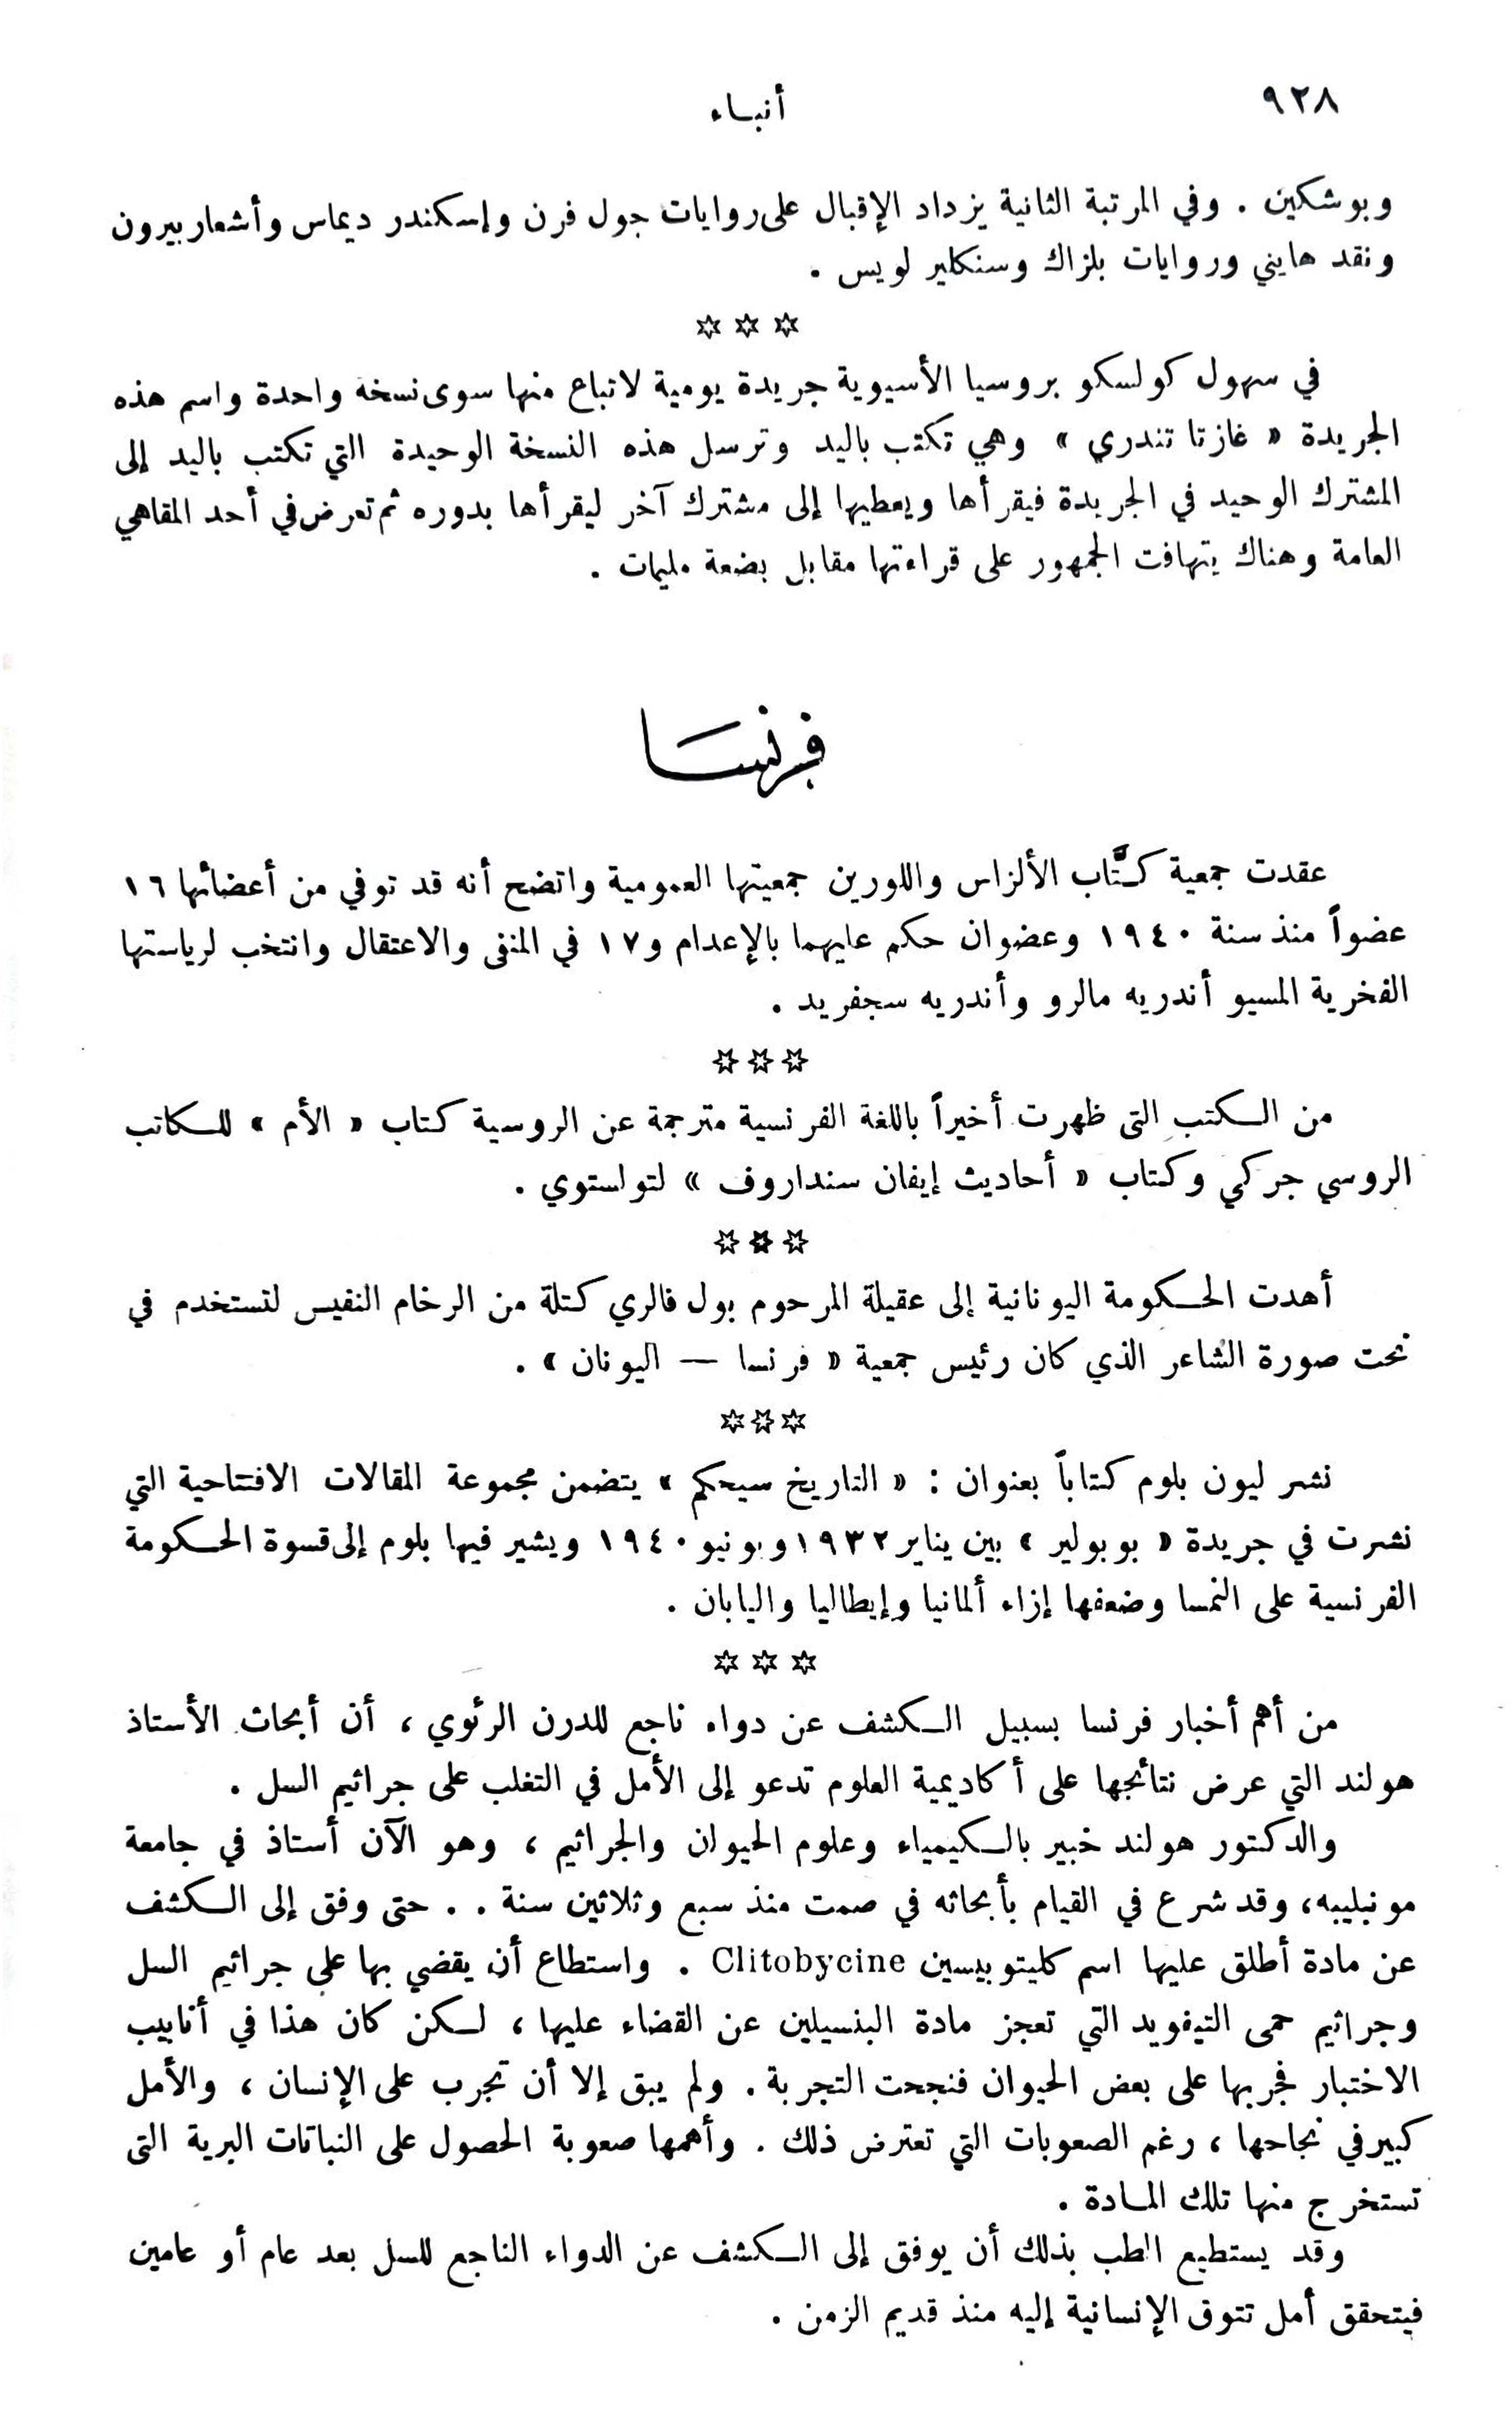 ٩٢٨
أنبـاء
وبوشكين . وفي المرتبة الثانية يزداد الإقبال على روايات جول فرن وإسكندر ديماس وأشعار بيرون
ونقد هايني وروايات بلزاك وسنكلير لويس .
✡ ✡ ✡
في سهول كولسكو بروسيا الأسيوية جريدة يومية لا تباع منها سوى نسخة واحدة واسم هذه
الجريدة « غازتا تندري » وهي تكتب باليد وترسل هذه النسخة الوحيدة التي تكتب باليد إلى
المشترك الوحيد في الجريدة فيقرأها ويعطيها إلى مشترك آخر ليقرأها بدوره ثم تعرض في أحد المقاهي
العامة وهناك يتهافت الجمهور على قراءتها مقابل بضعة مليمات .
فرنسا
عقدت جمعية كتَّاب الألزاس واللورين جمعيتها العمومية واتضح أنه قد توفي من أعضائها ١٦
عضواً منذ سنة ١٩٤٠ وعضوان حكم عليهما بالإعدام و١٧ في المنفى والاعتقال وانتخب لرياستها
الفخرية المسيو أندريه مالرو وأندريه سجفريد .
✡ ✡ ✡
من الكتب التى ظهرت أخيراً باللغة الفرنسية مترجمة عن الروسية كتاب « الأم » للكاتب
الروسي جركي وكتاب « أحاديث إيفان سنداروف » لتولستوي .
✡ ✡ ✡
أهدت الحكومة اليونانية إلى عقيلة المرحوم بول فالري كتلة من الرخام النفيس لتستخدم في
نحت صورة الشاعر الذي كان رئيس جمعية « فرنسا — اليونان » .
✡ ✡ ✡
نشر ليون بلوم كتاباً بعنوان : « التاريخ سيحكم » يتضمن مجموعة المقالات الافتتاحية التي
نشرت في جريدة « بوبولير » بين يناير ١٩٣٢ ويونيو ١٩٤٠ ويشير فيها بلوم إلى قسوة الحكومة
الفرنسية على النمسا وضعفها إزاء ألمانيا وإيطاليا واليابان .
✡ ✡ ✡
من أهم أخبار فرنسا بسبيل الكشف عن دواء ناجع للدرن الرئوي ، أن أبحاث الأستاذ
هولند التي عرض نتائجها على أكاديمية العلوم تدعو إلى الأمل في التغلب على جراثيم السل .
والدكتور هولند خبير بالكيمياء وعلوم الحيوان والجراثيم ، وهو الآن أستاذ في جامعة
مونبلييه، وقد شرع في القيام بأبحاثه في صمت منذ سبع وثلاثين سنة . . حتى وفق إلى الكشف
عن مادة أطلق عليها اسم كليتوبيسين Clitobycine . واستطاع أن يقضي بها على جراثيم السل
وجراثيم حمى التيفويد التي تعجز مادة البنسيلين عن القضاء عليها ، لكن كان هذا في أنابيب
الاختبار فجربها على بعض الحيوان فنجحت التجربة . ولم يبق إلا أن تجرب على الإنسان ، والأمل
كبير في نجاحها ، رغم الصعوبات التي تعترض ذلك . وأهمها صعوبة الحصول على النباتات البرية التى
تستخرج منها تلك المادة .
وقد يستطيع الطب بذلك أن يوفق إلى الكشف عن الدواء الناجع للسل بعد عام أو عامين
فيتحقق أمل تتوق الإنسانية إليه منذ قديم الزمن .